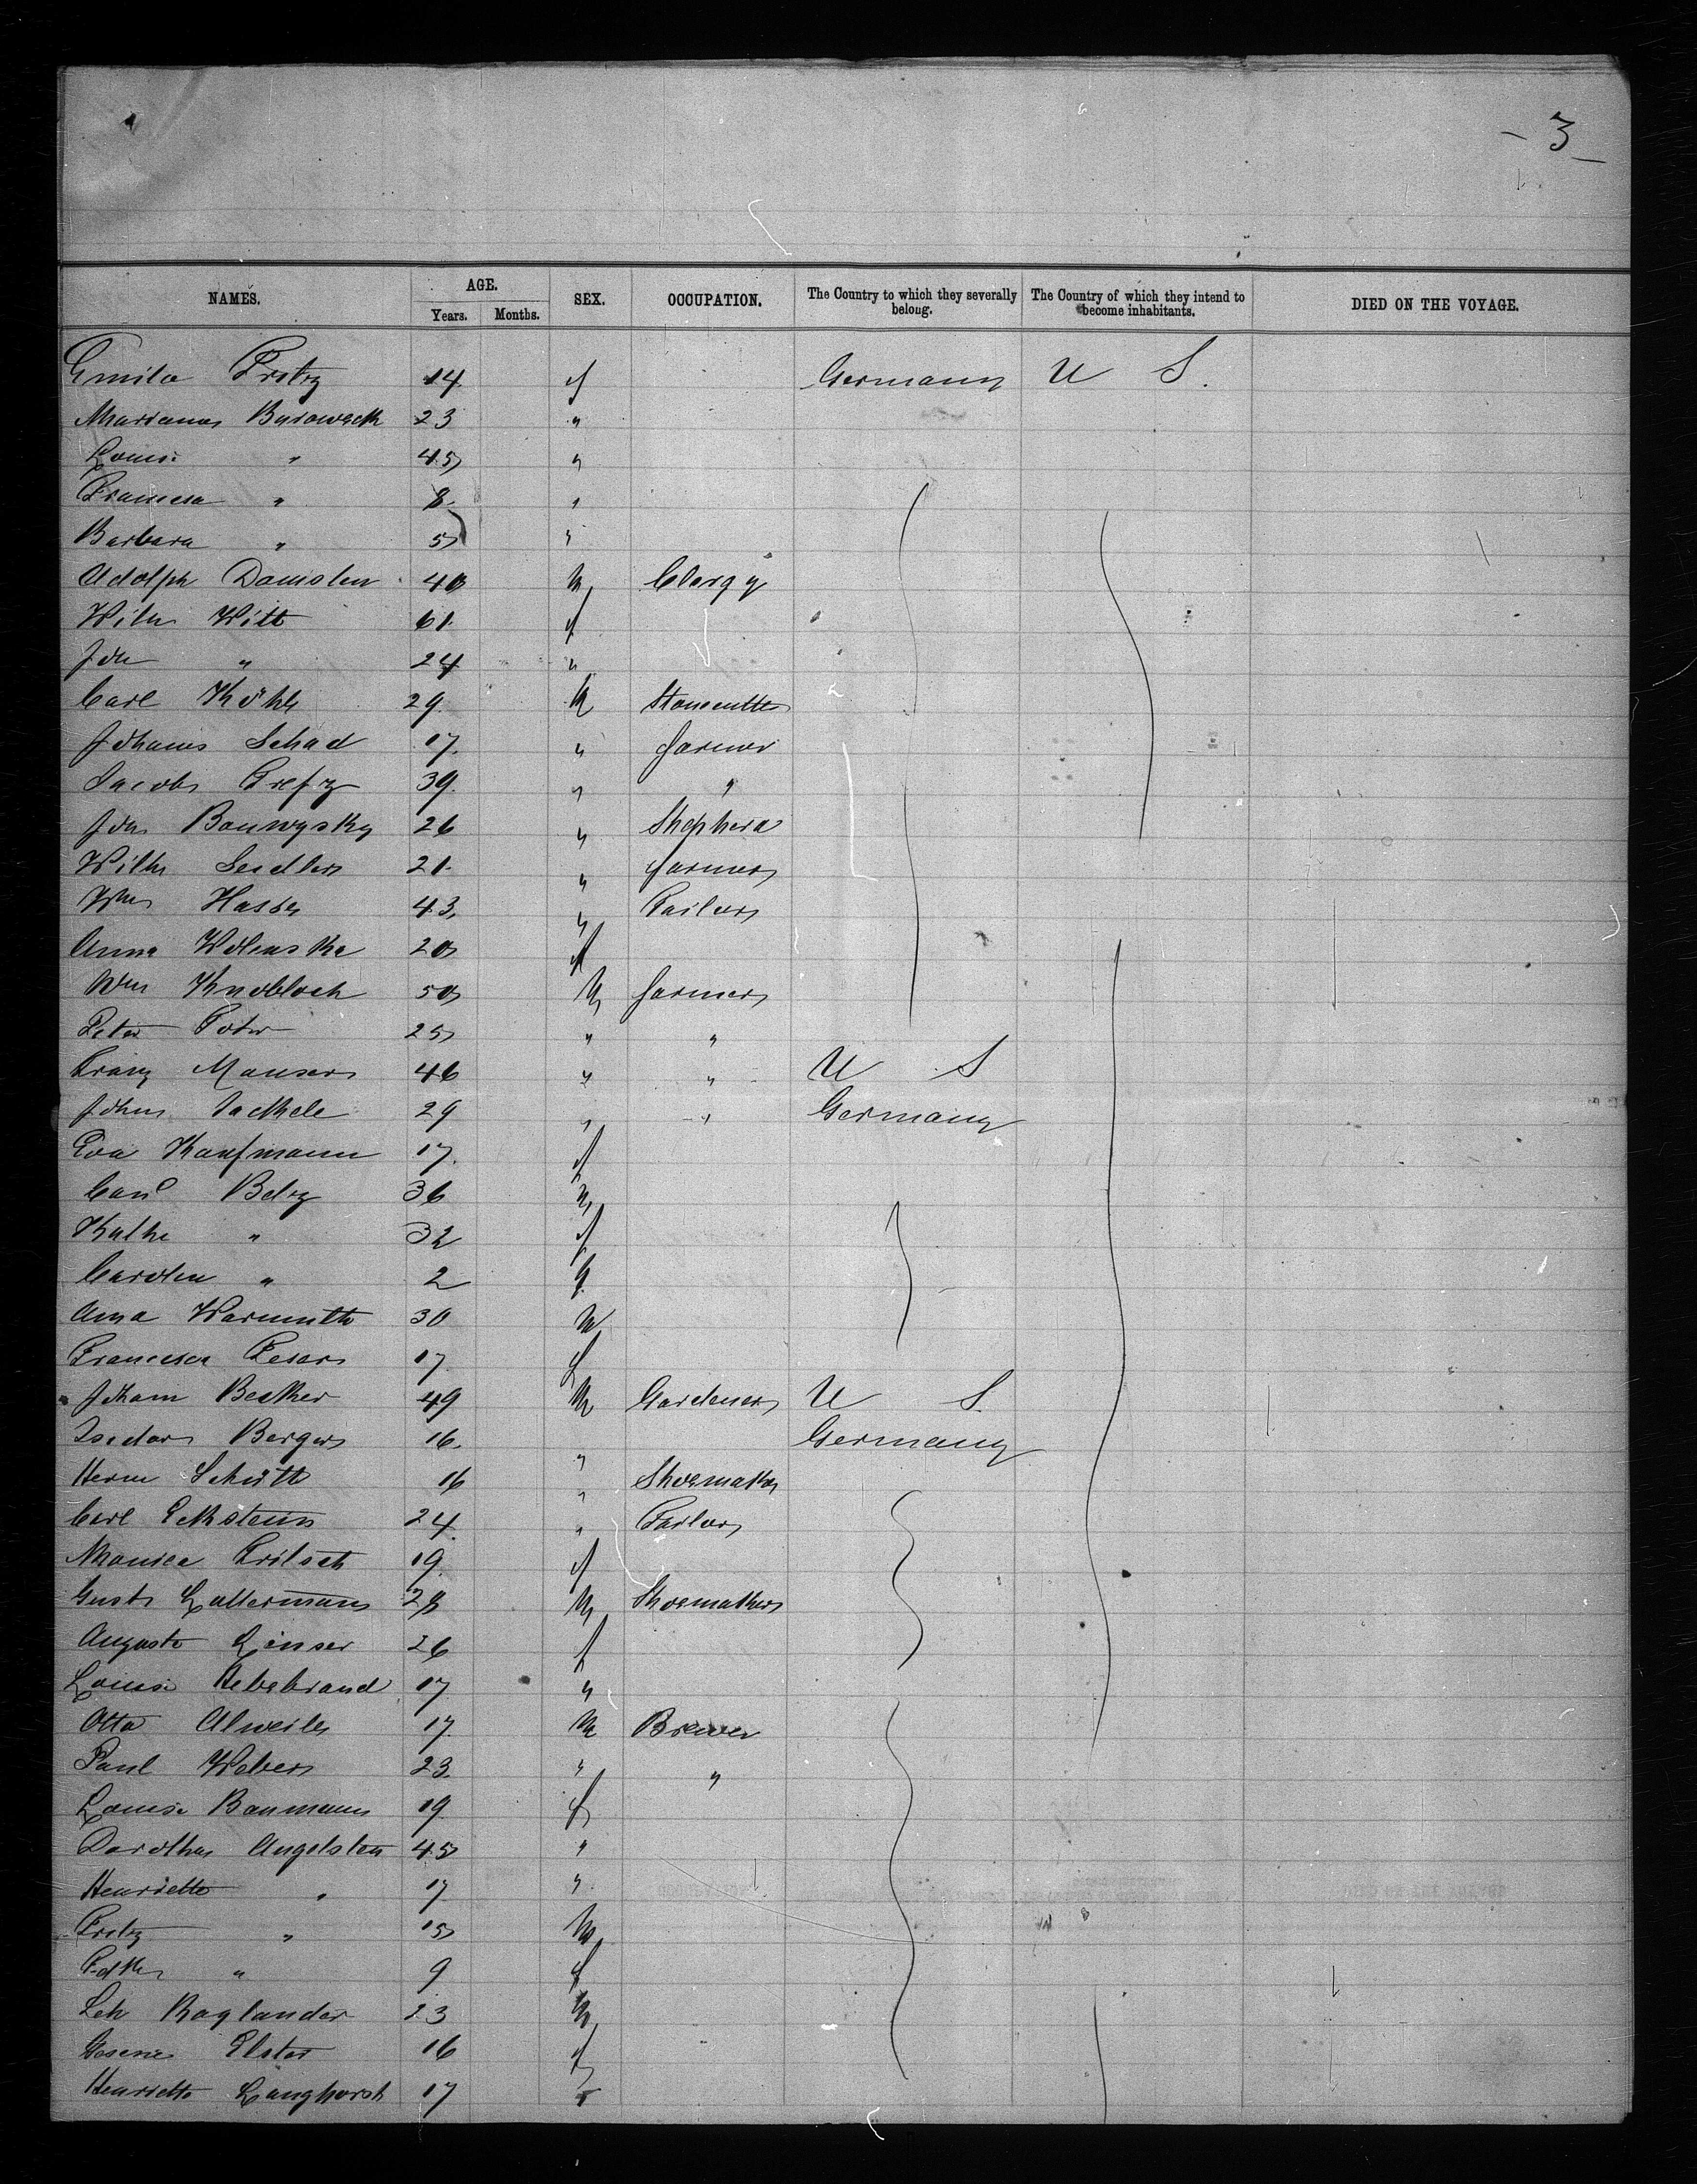 - 3 -
NAMES. AGE. SEX. OCCUPATION. The Country to which they severally belong. The Country of which they intend to become inhabitants. DIED ON THE VOYAGE.
Years. Months.
Emila Fritz 14 f Germany U S.
Mariana 23 "
Louis " 45 "
Francisca " 8 "
Barbara " 5 "
Adolph 40 M Clergy
Wilh Witt 61 f
Joh " 24 "
Carl Köhle 29 M Stonecutter
Johanns Schad 17 " farmer
Jacob 39 " "
Joh 26 " Shepherd
Wilh Seidler 21 " farmer
Wm Hasse 43 " Tailor
Anna Wolenska 20 f
Wm Knobloch 50 M farmer
Peter 25 " "
Franz Mauser 46 " " U S
Johns Jackele 29 " " Germany
Eva Kaufmann 17 f
Carl Betz 36 M
Kathe " 32 f
Carolin " 2 f
Anna Warmuth 30 M
Francisca 17 f
Joham Becker 49 M Gardener U S
Isedor Berger 16 " Germany
Herm Schütt 16 " Shoemaker
Carl Eckstein 24 " Tailor
Monica Fritsch 19 f
Gust Lattermann 28 M Shoemaker
Auguste Linser 26 f
Louise Hebebrand 17 "
Otto Alweiler 17 M Brewer
Paul Weber 23 " "
Louise Baumann 19 f
Dorothea Angelsten 45 "
Henriette " 17 "
Fritz " 15 M
" 9 f
Leh Raglander 23 M
Gesene Elster 16 f
Henriette Langhorst 17 "